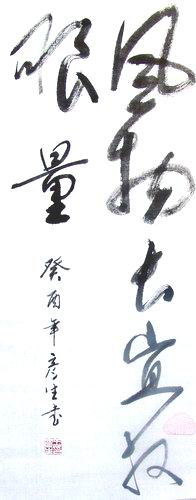 风物长宜放
眼量
癸酉年彦生书